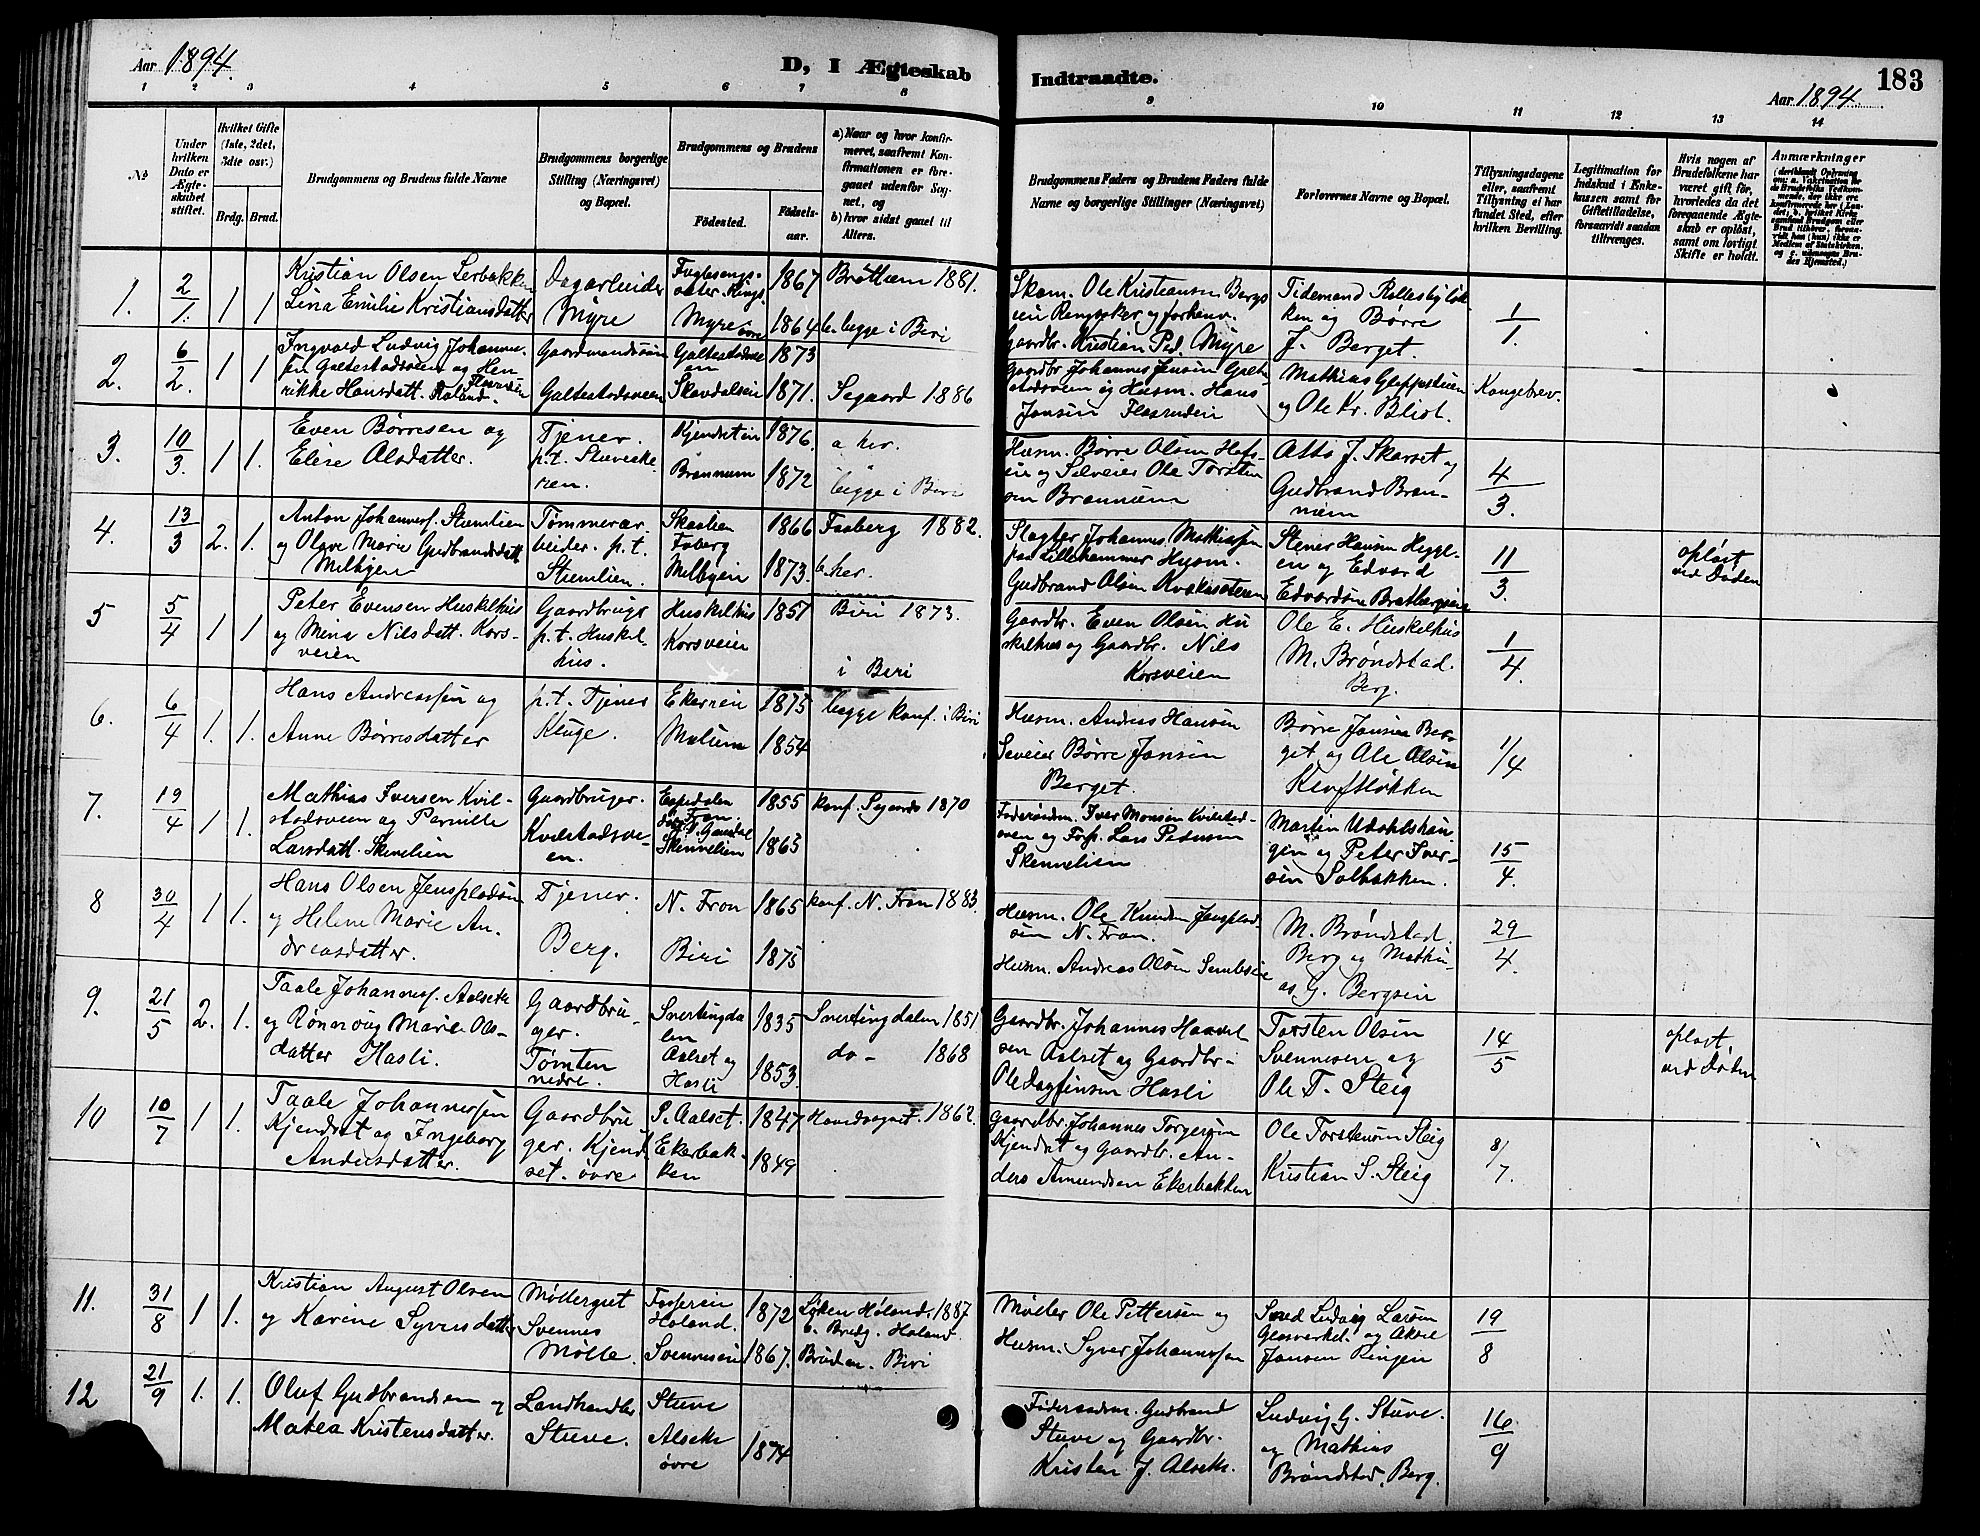 Aar 1894.
D, I Ægteskab
Indtraadte.
183
Aar 1894
1 2 3 4 5 6 7 8 9 10 11 12 13 14
№
Under hvilken Dato er Ægteskabet stiftet.
Hvilket Gifte (1ste, 2det, 3die osv.)
Brdg. Brud.
Brudgommens og Brudens fulde Navne
Brudgommens borgerlige Stilling (Næringsvei) og Bopæl.
Brudgommens og Brudens
Fødested.
Fødselsaar.
a) Naar og hvor konfirmeret, saafremt Konfirmationen er foregaaet udenfor Sognet, og
b) hvor sidst gaaet til Alters.
Brudgommens Faders og Brudens Faders fulde Navne og borgerlige Stillinger (Næringsvei)
Forlovernes Navne og Bopæl.
Tillysningsdagene eller, saafremt Tillysning ei har fundet Sted, efter hvilken Bevilling.
Legitimation for Indskud i Enkekassen samt for Giftetilladelse, forsaavidt saadan tiltrænges.
Hvis nogen af Brudefolkene har været gift før, hvorledes da det foregaaende Ægteskab er opløst, samt om lovligt Skifte er holdt.
Anmærkninger
1. 2/1. 1 1
Kristian Olsen Lerbakken
Lina Emilie Kristiansdatter
Dagarbeider
Myre
Myre øvre
1867
1864
Brøttum 1881.
b. begge i Biri
Ole Kristiansen Bergs
Ringsaker og forhenv.
Gaardbr. Kristian Ped. Myre
Tidemand Rollesbyløk
ken og Børre
J. Berget.
1/1.
2. 6/2. 1 1
Ingvald Ludvig Johanne-
sen Galtestadsveien og Hen-
rikke Hansdatt.
Gaardmandssøn
Galtestadsveien
Skavdalseie
1873
1871.
Segaard 1886
Gaardbr Johannes Jensen Galte
stadsveien og Husm. Hans
Jansen
Mathias
og Ole Kr. Bliot.
Kongebrev.
3. 10/3. 1 1.
Even Børresen og
Elise Olsdatter.
Tjener.
p.t.
Kjendsetein
Brønnum
1876.
1872
a her.
begge i Biri
Husm. Børre Olsen
og Selveier Ole Torsten
sen Brønnum
J. Skarset og
Gudbrand Brøn-
num
4/3.
4. 13/3 2. 1.
Anton Johannesf. Stumlien
og Olave Marie Gudbrandsdatt
Milbyen
Tømmerar.
beider. p.t.
Stumlien.
Skaalien
Faberg
Milbyein
1866
1873.
Faaberg 1882.
b. her.
Slagter Johannes Mathiassen
fra Lillehammer Husm.
Gudbrand Olsen
Stener Hansen Hegge-
en og Edvard
Edvardsen Bratbergseie
11/3.
opløst
ved Døden
5 5/4 1 1
Peter Evensen Huskelhus
og Mina Nilsdatt. Kors-
veien
Gaardbruger
p.t. Huskel-
hus.
Huskelhus
Korsveien
1857
Biri 1873.
i Biri
Gaardbr. Even Olsen Hu
skelhus og Gaardbr. Nils
Korsveien
Ole E. Huskelhus
M. Brøndstad.
Berg.
1/4.
6. 6/4 1. 1.
Hans Andreassen og
Anne Børresdatter
p.t. Tjener
Kluge.
Ekernein
1875
1854
begge konf. i Biri
Husm. Andreas Hansen
Børre Jansen
Berget.
Børre Jansen Ber-
get og Ole Olsen
1/4
7. 19/4 1 1.
Mathias Iversen Kvil-
stadsveien og Pernille
Larsdatt. Skinvlien
Gaardbruger.
Kvilstadsvei-
en.
Espedalen
Fron
Skinvlien
1855
1863
konf. Segaards 1870
Føderaadm. Iver Monsen Kvilstad-
sveien og Forp. Lars Pedersen
Martin Udahlshau
gen og Peter Iver-
sen Solbakken.
15/4.
8 30/4 1 1.
Hans Olsen
og Helene Marie An-
dreasdatter.
Tjener.
Berg.
N. Fron
Biri
1865
1875
konf. N. Fron 1883.
Husm. Ole Knudsen
N. Fron.
Husm. Andreas Olsen
M. Brøndstad
Berg og Mathi-
as G. Bergseie
29/4.
9. 21/5 2. 1.
Taale Johannesf. Aalset
og Rønnoug Marie Ols-
datter Hasli.
Gaardbru-
ger.
Tømten
nedre.
Snertingda
len
Aalset og
Hasli
1835
1853.
Snertingdalen 1851
do- 1868
Gaardbr. Johannes
sen Aalset og Gaardbr.
Ole Dagfinsen Hasli
Torsten Olsen
Svennesen og
Ole T. Steig
14/5
opløst
ved Døden
10 10/7 1 1.
Taale Johannessen
Kjendset og Ingeborg
Andersdatter.
Gaardbru
ger. Kjend
set. øvre
S. Aalset.
Ekerbak-
ken
1847
1849
1862.
Gaardbr. Johannes Torgersen
Kjendset og Gaardbr. An-
ders Amundsen Ekerbakken
Ole Torstensen Steig
Kristian S. Steig
8/7.
11. 31/8 1 1.
Kristian August Olsen
og Karine Syversdatter
Møllergut
Svennes
Mølle.
Høland.
Svenneseie
1872
1867.
Løken Høland. 1887
b. Brudg. Høland.
Bruden. Biri
Møller Ole Pettersen og
Husm. Syver Johannesen
Ludvig Larsen
Glasverket. og Aksel
Jansen Ringen
19/8
12 21/9 1. 1.
Oluf Gudbrandsen og
Matea Kristensdatter.
Landhandler
Stuve.
Stuve
Alsete
øvre
1874
Føderaadm. Gudbrand
Stuve og Gaardbr.
Kristen J. Alsete.
Ludvig G. Stuve.
og Mathias
Brøndstad, Berg.
16/9